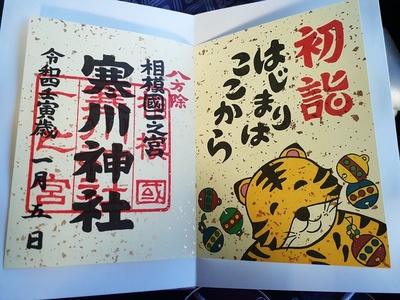 初詣
はじまりは
ここから
八方除
相模國一之宮
寒川神社
令和四壬寅歳 一月五日